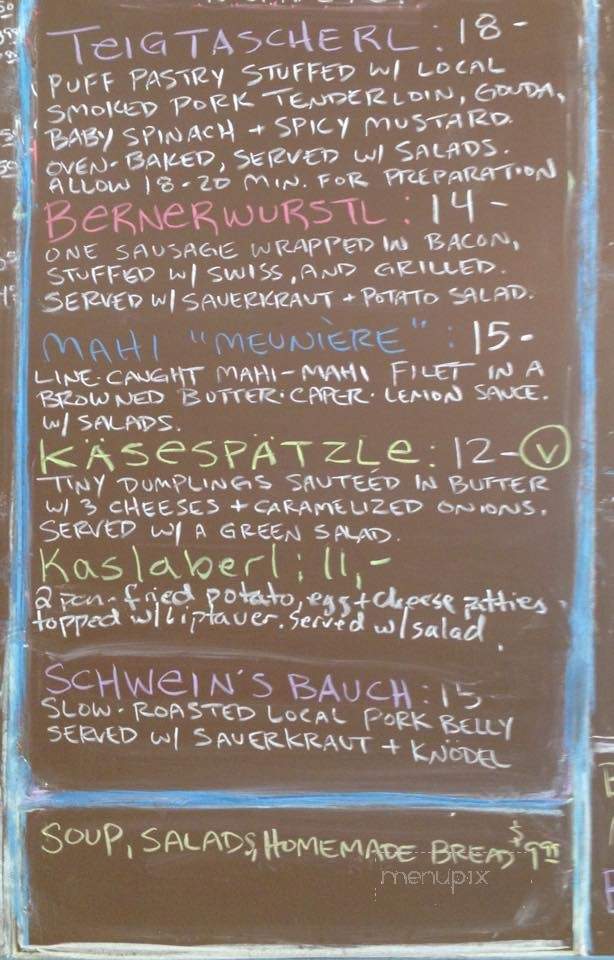 TEIGTASCHERL : 18 -
PUFF PASTRY STUFFED W/ LOCAL
SMOKED PORK TENDERLOIN, GOUDA,
BABY SPINACH + SPICY MUSTARD.
OVEN-BAKED, SERVED W/ SALADS.
ALLOW 18-20 MIN. FOR PREPARATION
BERNERWURSTL : 14 -
ONE SAUSAGE WRAPPED IN BACON,
STUFFED W/ SWISS, AND GRILLED.
SERVED W/ SAUERKRAUT + POTATO SALAD.
MAHI "MEUNIÈRE" : 15 -
LINE-CAUGHT MAHI-MAHI FILET IN A
BROWNED BUTTER·CAPER·LEMON SAUCE.
W/ SALADS.
KÄSESPÄTZLE : 12 - V
TINY DUMPLINGS SAUTEED IN BUTTER
W/ 3 CHEESES + CARAMELIZED ONIONS.
SERVED W/ A GREEN SALAD.
Kaslaberl : 11,-
2 pan-fried potato, egg + cheese patties
topped w/ liptauer. Served w/ salad.
SCHWEIN'S BAUCH : 15
SLOW-ROASTED LOCAL PORK BELLY
SERVED W/ SAUERKRAUT + KNÖDEL
SOUP, SALADS, HOMEMADE BREAD $9.95
menupix